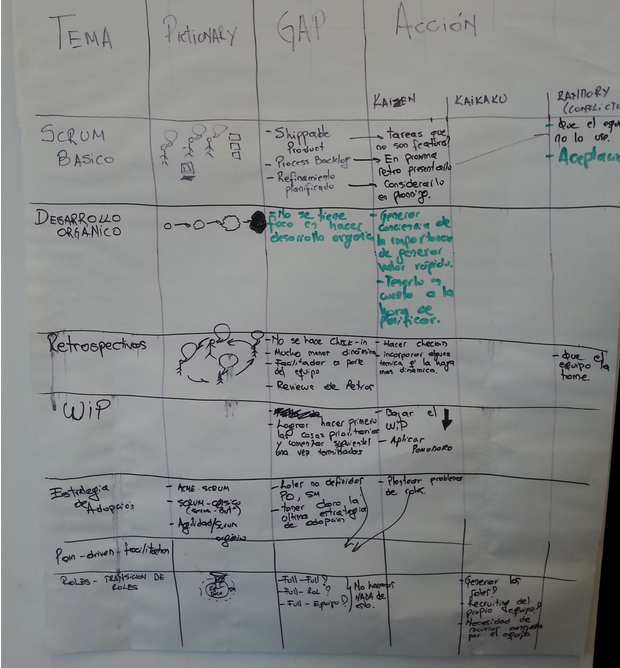 TEMA
PICTIONARY
GAP
ACCIÓN
KAIZEN
KAIKAKU
RANDORY
(CONFLICTO
SCRUM
BASICO
- Shippable
Product
- Process Backlog
- Refinamiento
planificado
tareas que
no son features?
En proxima
retro presentarlo
Considerarlo
en planning.
- Que el equ
no lo use.
- Aceptació
DESARROLLO
ORGANICO
- No se tiene
foco en hacer
desarrollo organic
- Generar
conciencia de
la importancia
de generar
valor rápido.
- Tenerlo en
cuenta a la
hora de
planificar.
Retrospectivas
- No se hace Check-in
- Mucho menor dinámica
- Facilitador a parte
del equipo
- Reviews de Retros
- Hacer checkin
- incorporar alguna
tecnica q' la haga
mas dinamica.
- que el
equipo la
tome.
WiP
- Lograr hacer primero
las cosas prioritarias
y comenzar siguientes
una vez terminadas
- Bajar el
WiP
- Aplicar
POMODORO
Estrategia
de Adopción
- ACME SCRUM
- SCRUM-CLASICO
- Agilidad/Scrum
- Roles no definidos
PO, SM
- tener claro la
ultima estrategia
de adopcion
- Plantear problema
de roles.
Pain-driven-facilitation
ROLES - TRANSICION DE
ROLES
- Full-Full?
- Full-Rol?
- Full-Equipo?
No hacemos
NADA de
esto.
- Generar los
roles?
- Recruiting del
propio equipo?
- Necesidad de
recursos
por el equipo.